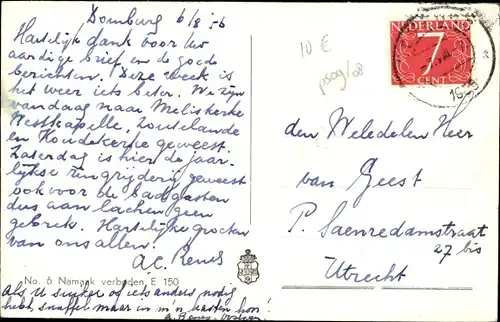 Domburg 6/8 '56
Hartelijk dank voor Uw
aardige brief en de goede
berichten. Deze week is
het weer iets beter. We zijn
vandaag naar Meliskerke
Westkapelle, Zoutelande
en Koudekerke geweest.
Zaterdag is hier de jaar-
lijkse ringrijderij geweest
ook voor de badgasten
dus aan lachen geen
gebrek. Hartelijke groeten
van ons allen!
A.C.
No. 6 Namaak verboden, E 150
Als U suiker of iets anders nodig
hebt, snuffel maar in m'n kasten hoor!
10 €
p509/08
NEDERLAND
7
CENT
den Weledelen Heer
van Geest
P. Saenredamstraat
27 bis
Utrecht